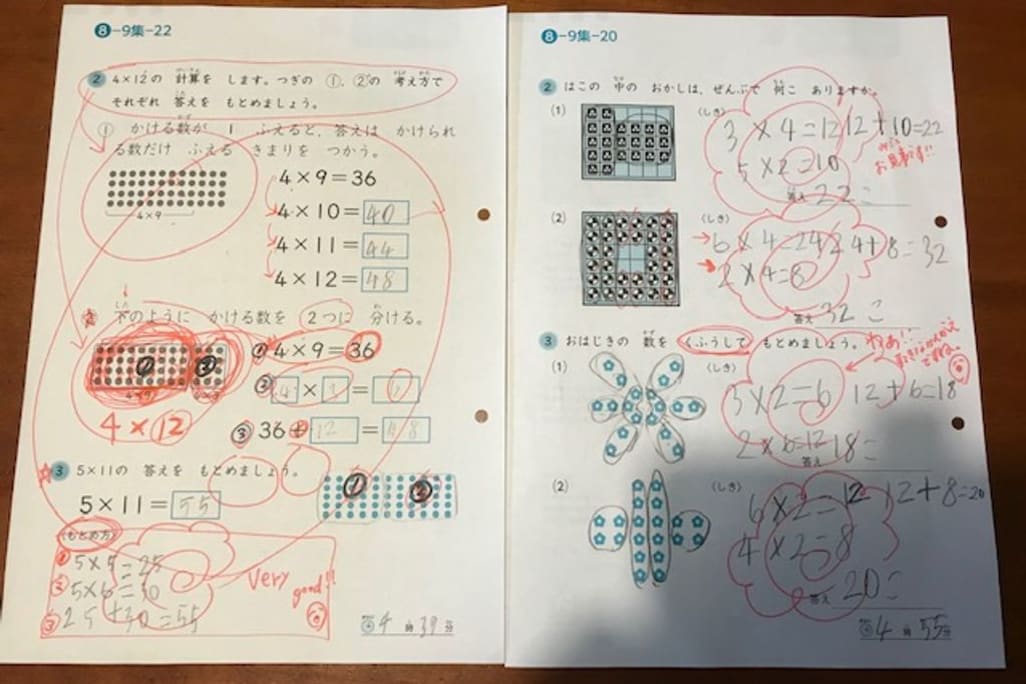 8-9集-22
2 4×12の 計算を します。つぎの ①、②の 考え方で
それぞれ 答えを もとめましょう。
① かける数が 1 ふえると、答えは かけられ
る数だけ ふえる きまりを つかう。
4×9
4×9=36
4×10=40
4×11=44
4×12=48
② 下のように かける数を 2つに 分ける。
① ②
4×12
① 4×9=36
②
③ 36+12=48
3 5×11の 答えを もとめましょう。
5×11=55
① ②
〈もとめ方〉
① 5×5=25
② 5×6=30
③ 25+30=55
Very good!!
4時39分
8-9集-20
2 はこの 中の おかしは、ぜんぶで 何こ ありますか。
(1)
(しき)
3×4=12 12+10=22
5×2=10
お見事です!!
答え 22こ
(2)
(しき)
6×4=24 24+8=32
2×4=8
答え 32こ
3 おはじきの 数を くふうして もとめましょう。
(1)
(しき)
3×2=6 12+6=18
2×6=12
答え 18こ
(2)
(しき)
6×2=12 12+8=20
4×2=8
答え 20こ
4時55分